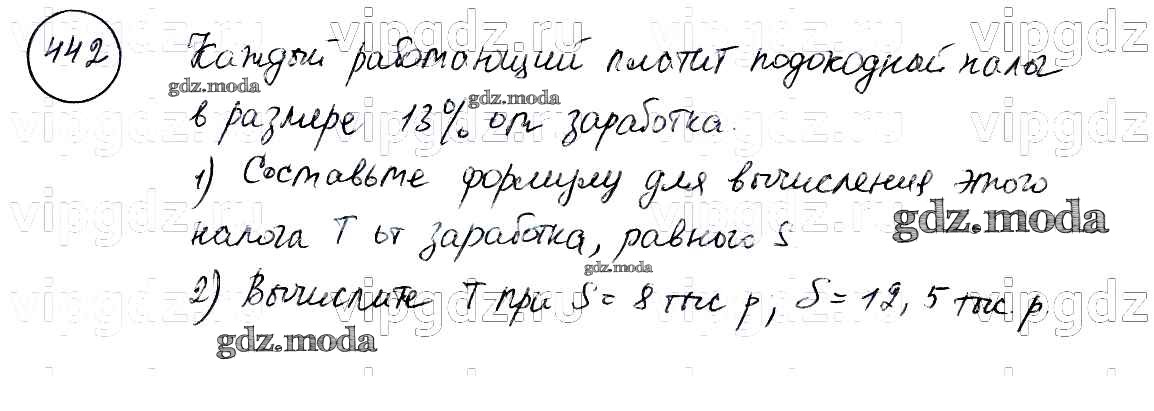 442 Каждый работающий платит подоходный налог
в размере 13% от заработка.
1) Составьте формулу для вычисления этого
налога T от заработка, равного S
2) Вычислите T при S = 8 тыс р, S = 12,5 тыс. р.
vipgdz.ru
gdz.moda